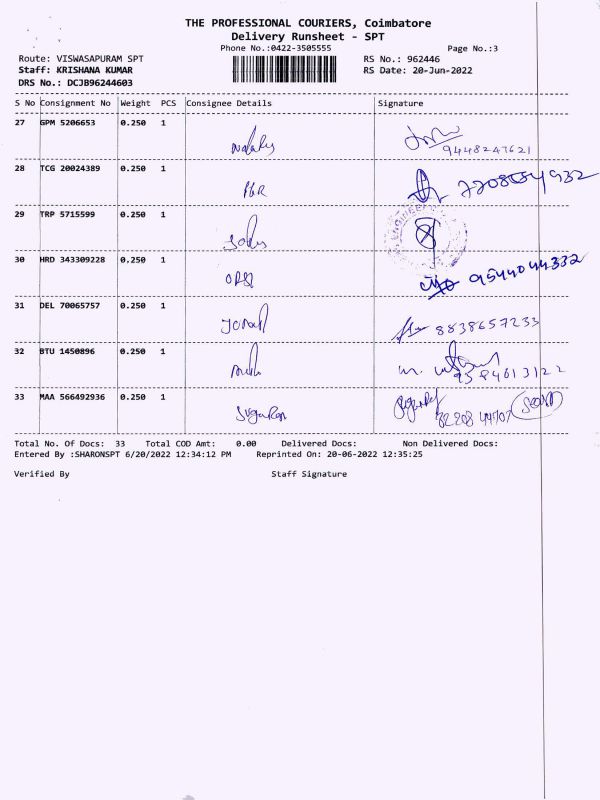 THE PROFESSIONAL COURIERS, Coimbatore
Delivery Runsheet - SPT
Phone No.:0422-3505555 Page No.:3
Route: VISWASAPURAM SPT RS No.: 962446
Staff: KRISHANA KUMAR RS Date: 20-Jun-2022
DRS No.: DCJB96244603
S No Consignment No Weight PCS Consignee Details Signature
27 GPM 5206653 0.250 1
9448247621
28 TCG 20024389 0.250 1
29 TRP 5715599 0.250 1
30 HRD 343309228 0.250 1 9544044332
31 DEL 70065757 0.250 1 8838657233
32 BTU 1450896 0.250 1
33 MAA 566492936 0.250 1
Total No. Of Docs: 33 Total COD Amt: 0.00 Delivered Docs: Non Delivered Docs:
Entered By :SHARONSPT 6/20/2022 12:34:12 PM Reprinted On: 20-06-2022 12:35:25
Verified By Staff Signature